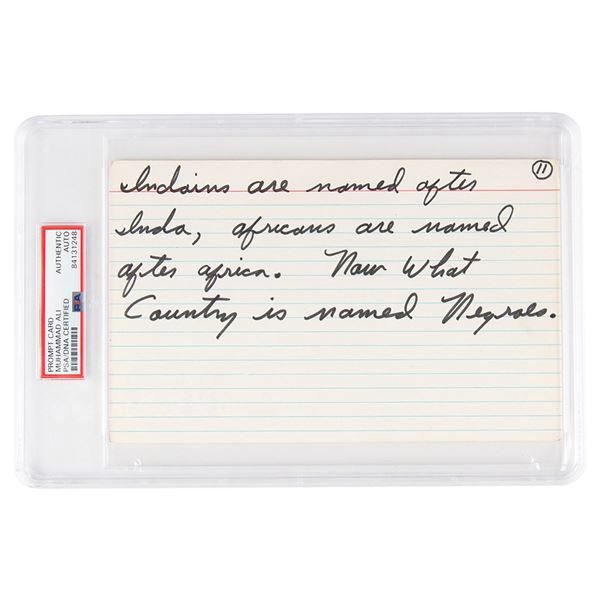 11
Indains are named after
Inda, africans are named
after africa. Now What
Country is named Negroes.
PROMPT CARD
MUHAMMAD ALI
PSA/DNA CERTIFIED
AUTHENTIC
AUTO
84131248
PSA